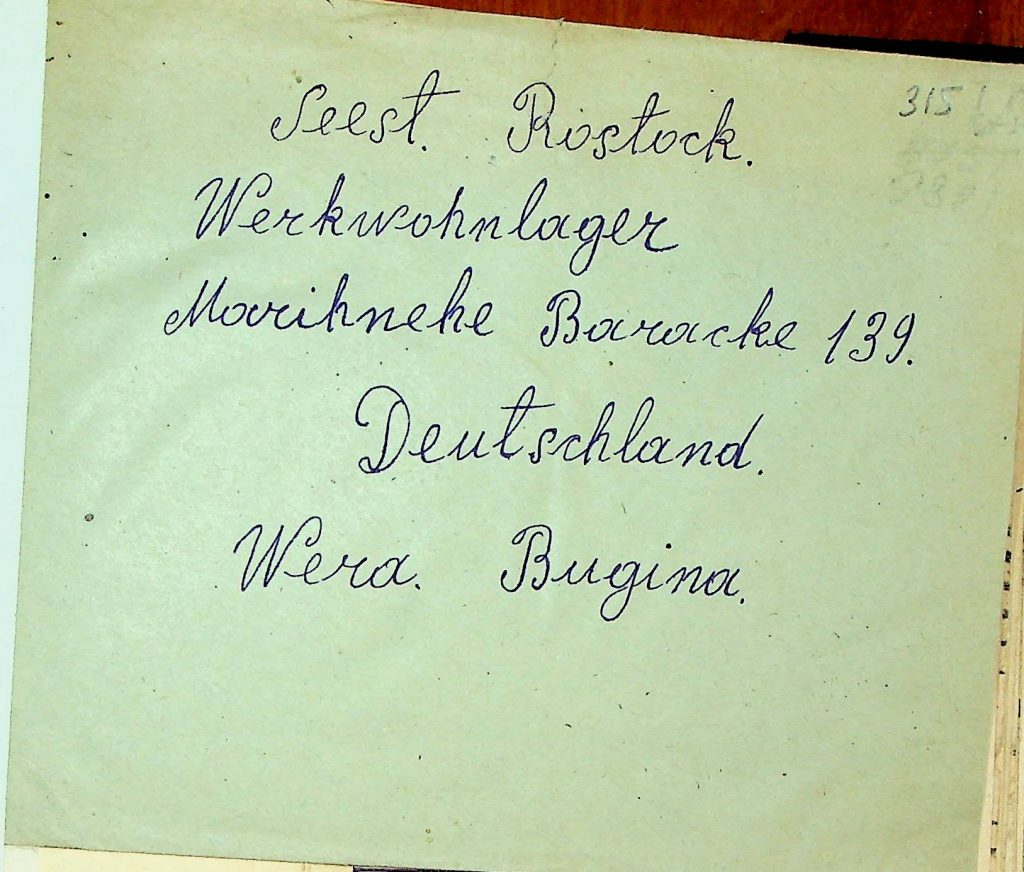 315
Seest. Rostock.
Werkwohnlager
Marihnehe Baracke 139.
Deutschland.
Wera. Bugina.